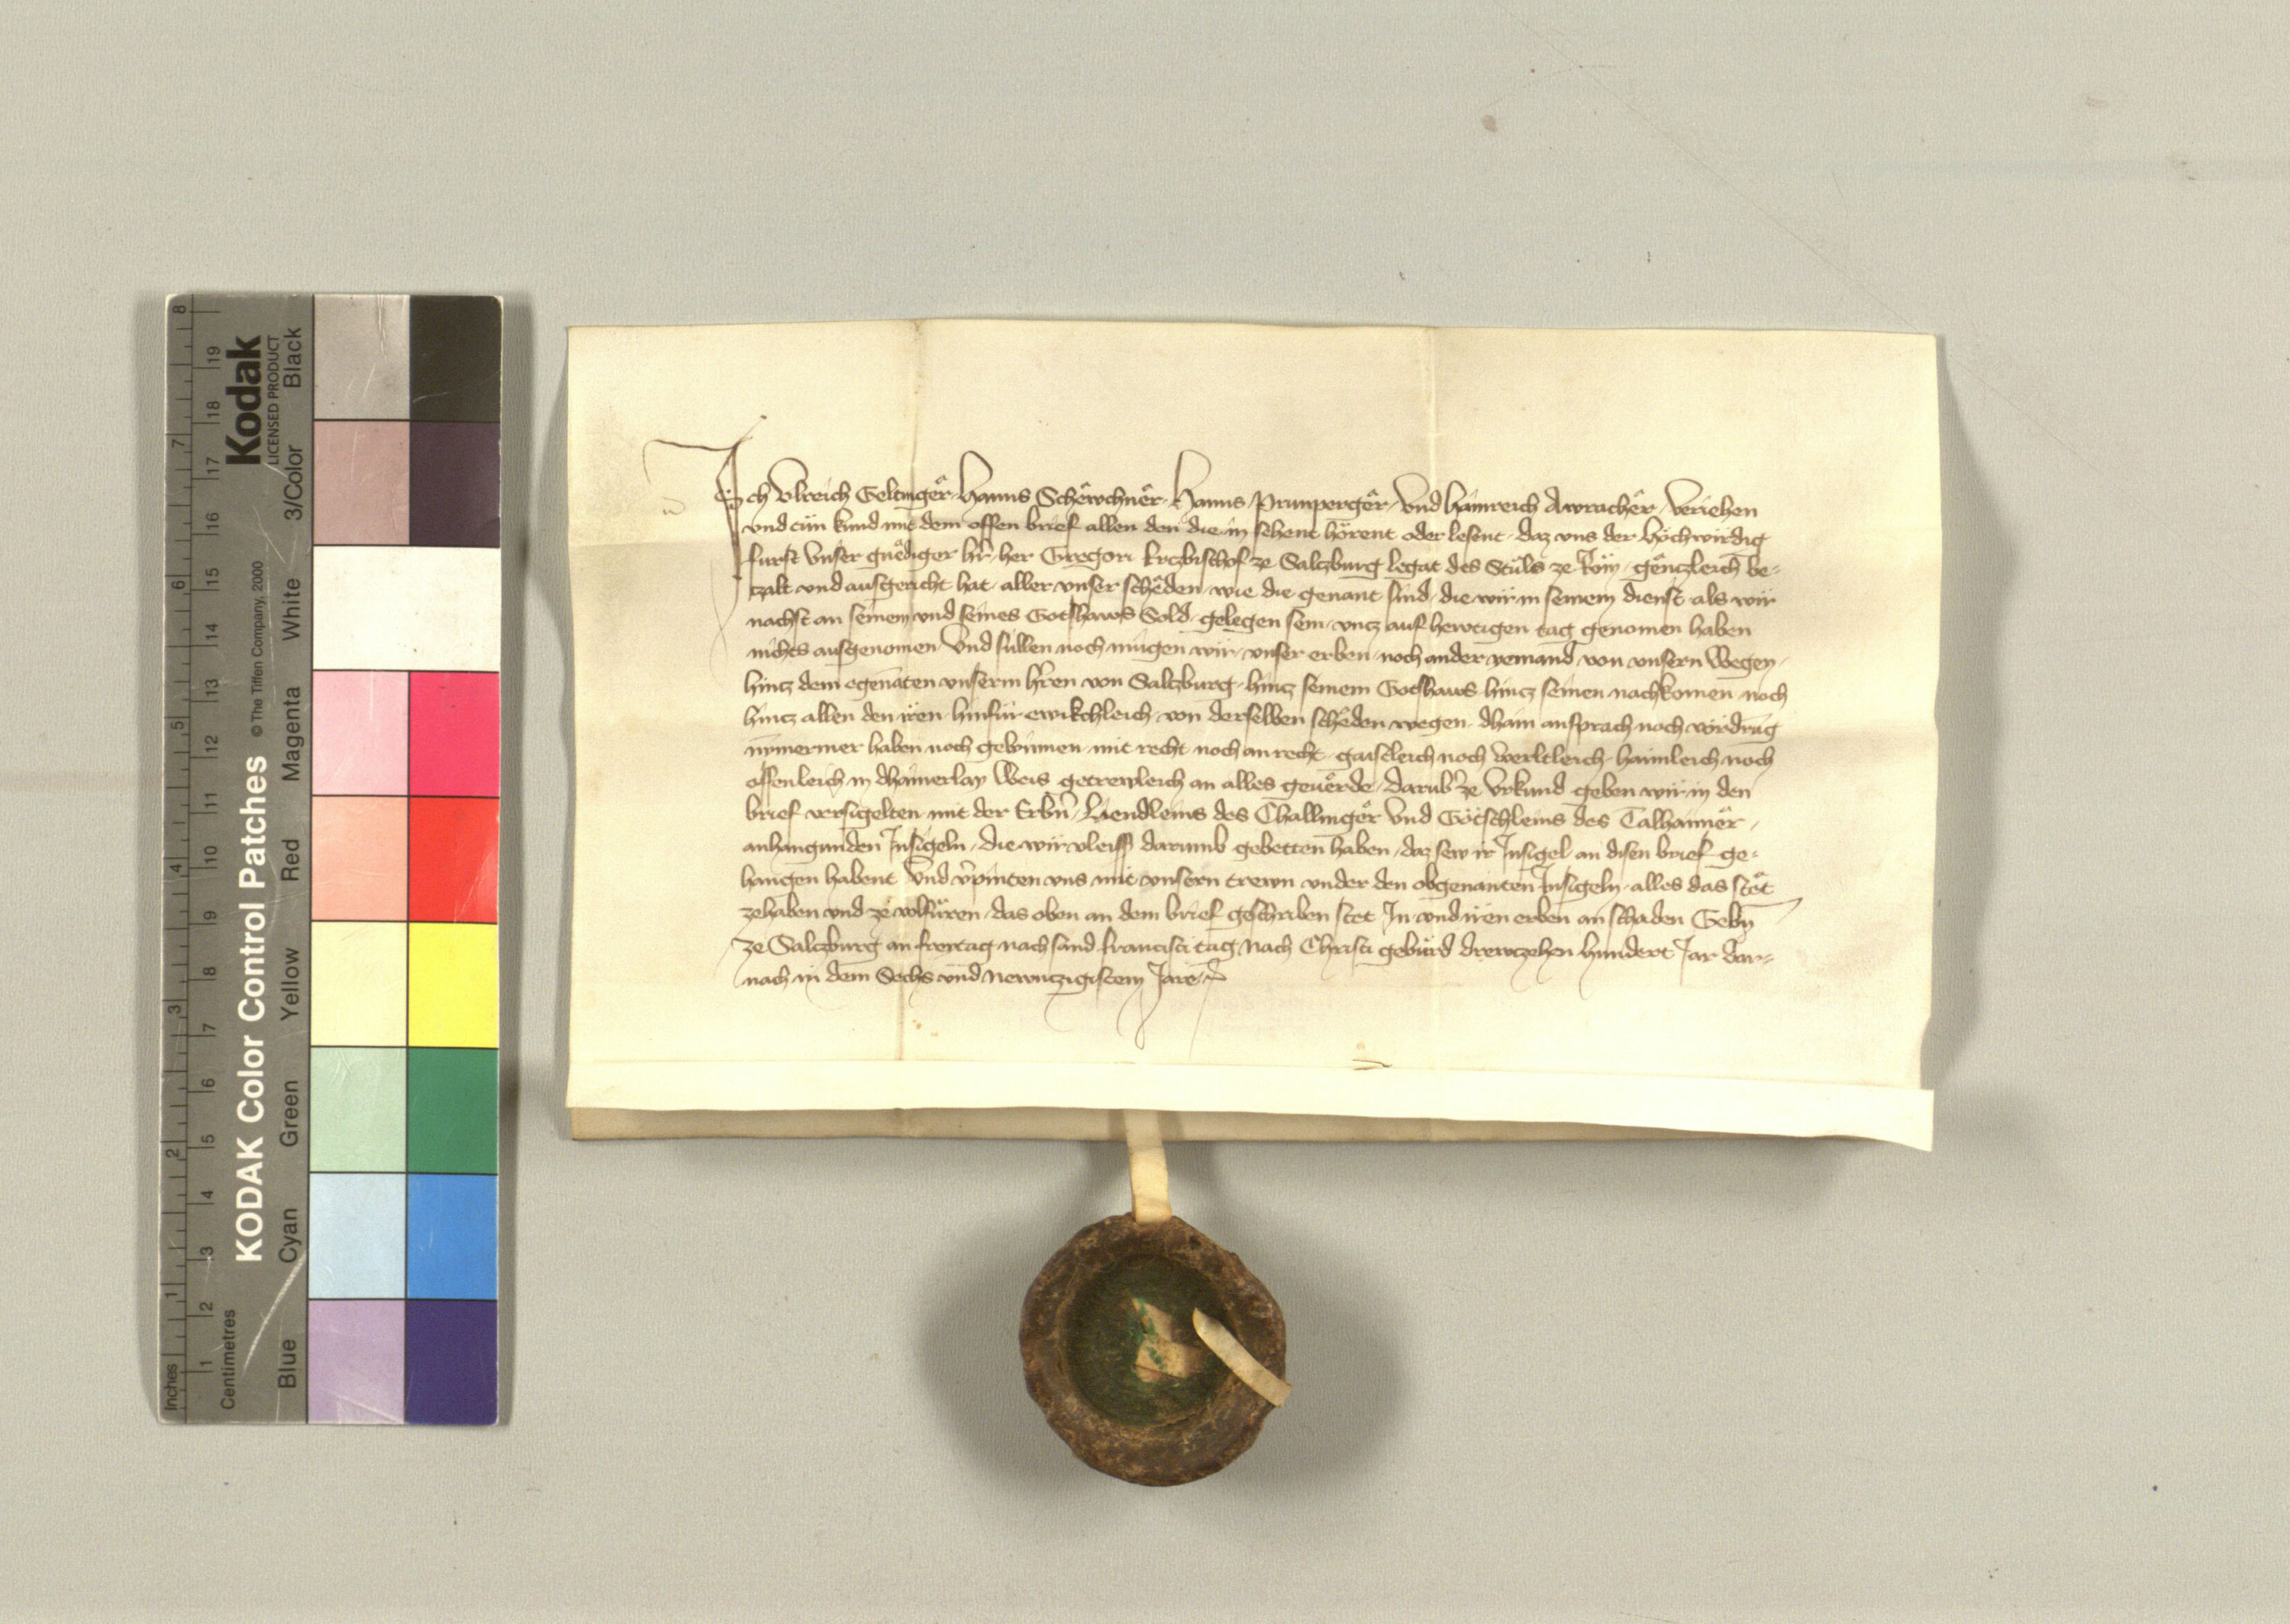 Ich Ulreich Geltinger Hanns Schewchner Hanns Prunperger und Hainreich Awracher veriehen
und tün kund mit dem offen brief allen den die in sehent hörent oder lesent daz uns der höchwirdig
fürst unser gnediger hr her Gregori Erczbischof ze Salczburg legat des Stüls ze Röm genczleich be-
czalt und ausgericht hat aller unser scheden wie die genant sind die wir in seinem dienst als wir
nachst an seinem und seines Gotshaws Sold gelegen sein uncz auf hewtigen tag genomen haben
nichts ausgenomen Und süllen noch mügen wir unser erben noch ander yemand von unsern wegen
hincz dem egenaten unserm hren von Salczburg hincz seinem Gotshaws hincz seinen nachkomen noch
hincz allen den iren hinfür ewikchleich von derselben scheden wegen dhain ansprach noch vördrug
nymermer haben noch gewinnen mit recht noch an recht gaistleich noch werltleich haimleich noch
offenleich in dhainerlay weis getrewleich an alles geuerde darub ze urkund geben wir in den
brief versigelten mit der Erbn Liendleins des Challinger und Götschleins des Talhaimer
anhangunden Insigeln die wir vleiss darumb gebetten haben daz sew ir Insigel an disen brief ge-
hangen habent Und vpinten uns mit unsern trewn under den obgenanten Insigeln alles das stet
zehaben und ze volfüren das oben an dem brief geschriben stet In und iren erben an schaden Gebn
ze Salczburg an freytag nach sand francisci tag Nach Christi gebürd drewczehen hundert Jar dar-
nach in dem Sechs und Newnczigistem Jare
Kodak
LICENSED PRODUCT
KODAK Color Control Patches
© The Tiffen Company, 2000
Black
3/Color
White
Magenta
Red
Yellow
Green
Cyan
Blue
Inches
1 2 3 4 5 6 7 8
Centimetres
1 2 3 4 5 6 7 8 9 10 11 12 13 14 15 16 17 18 19